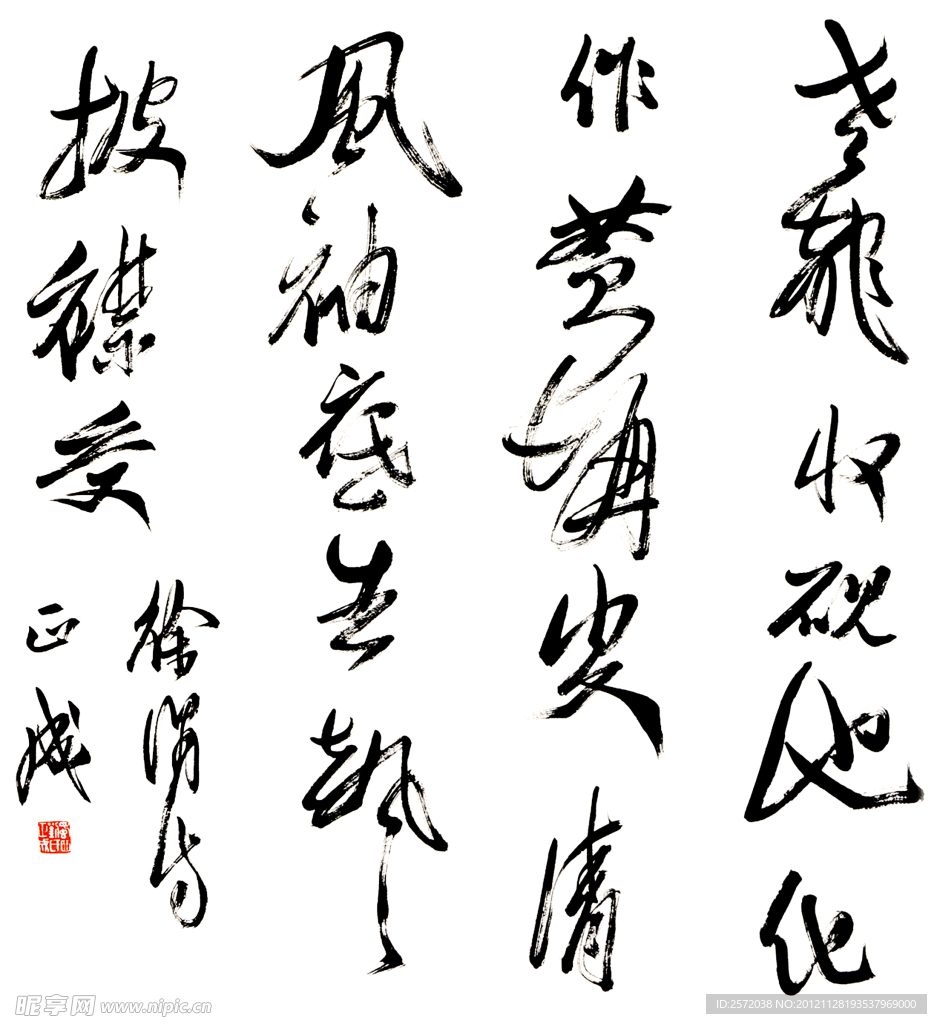 老龍收硯池化
作黄梅叟清
風袖底去
披襟受
徐渭诗
正成
昵享网 www.nipic.cn
ID:2572038 NO:20121128193537969000